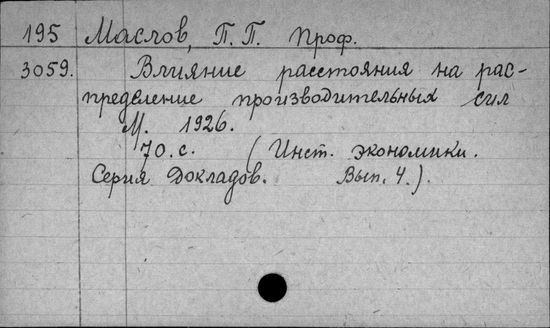 195 Маслов, П. П. Проф.
3059. Влияние расстояния на рас-
пределение производительных сил
М. 1926.
70. с. (Инст. экономики.
Серия Докладов. Вып. 4.).